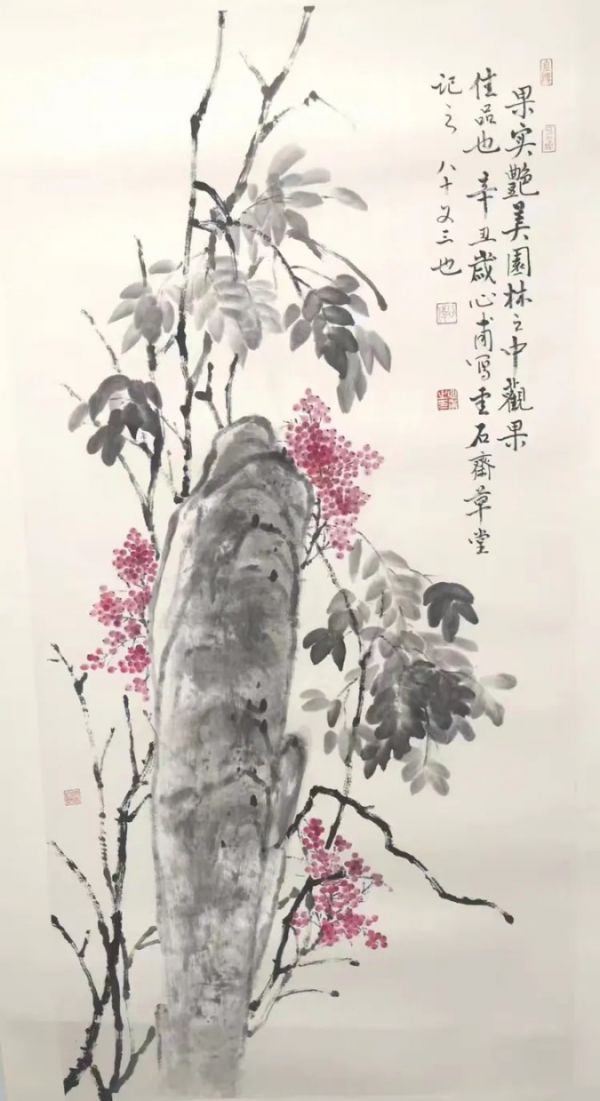 果实艷美園林之中觀果
佳品也 辛丑歲心甫写雲石齋草堂
记之 八十又三也